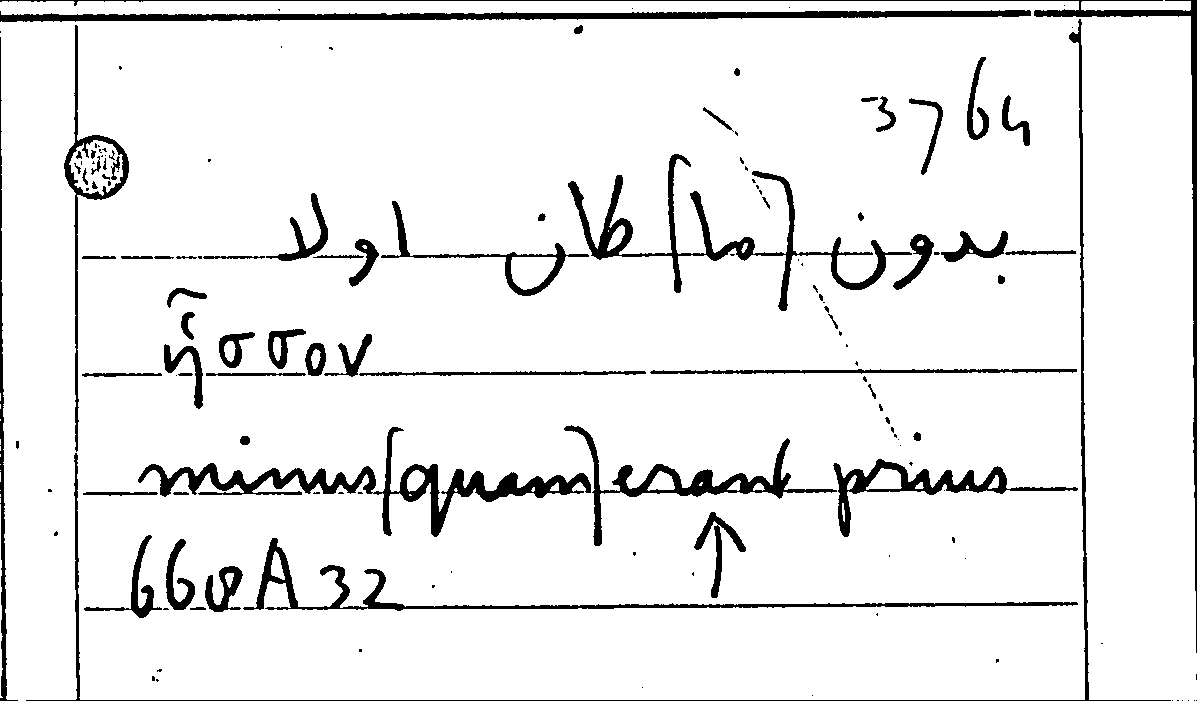 3764
بدون [ما] كان اولا
ἧσσον
minus [quam] erant prius
↑
668A32